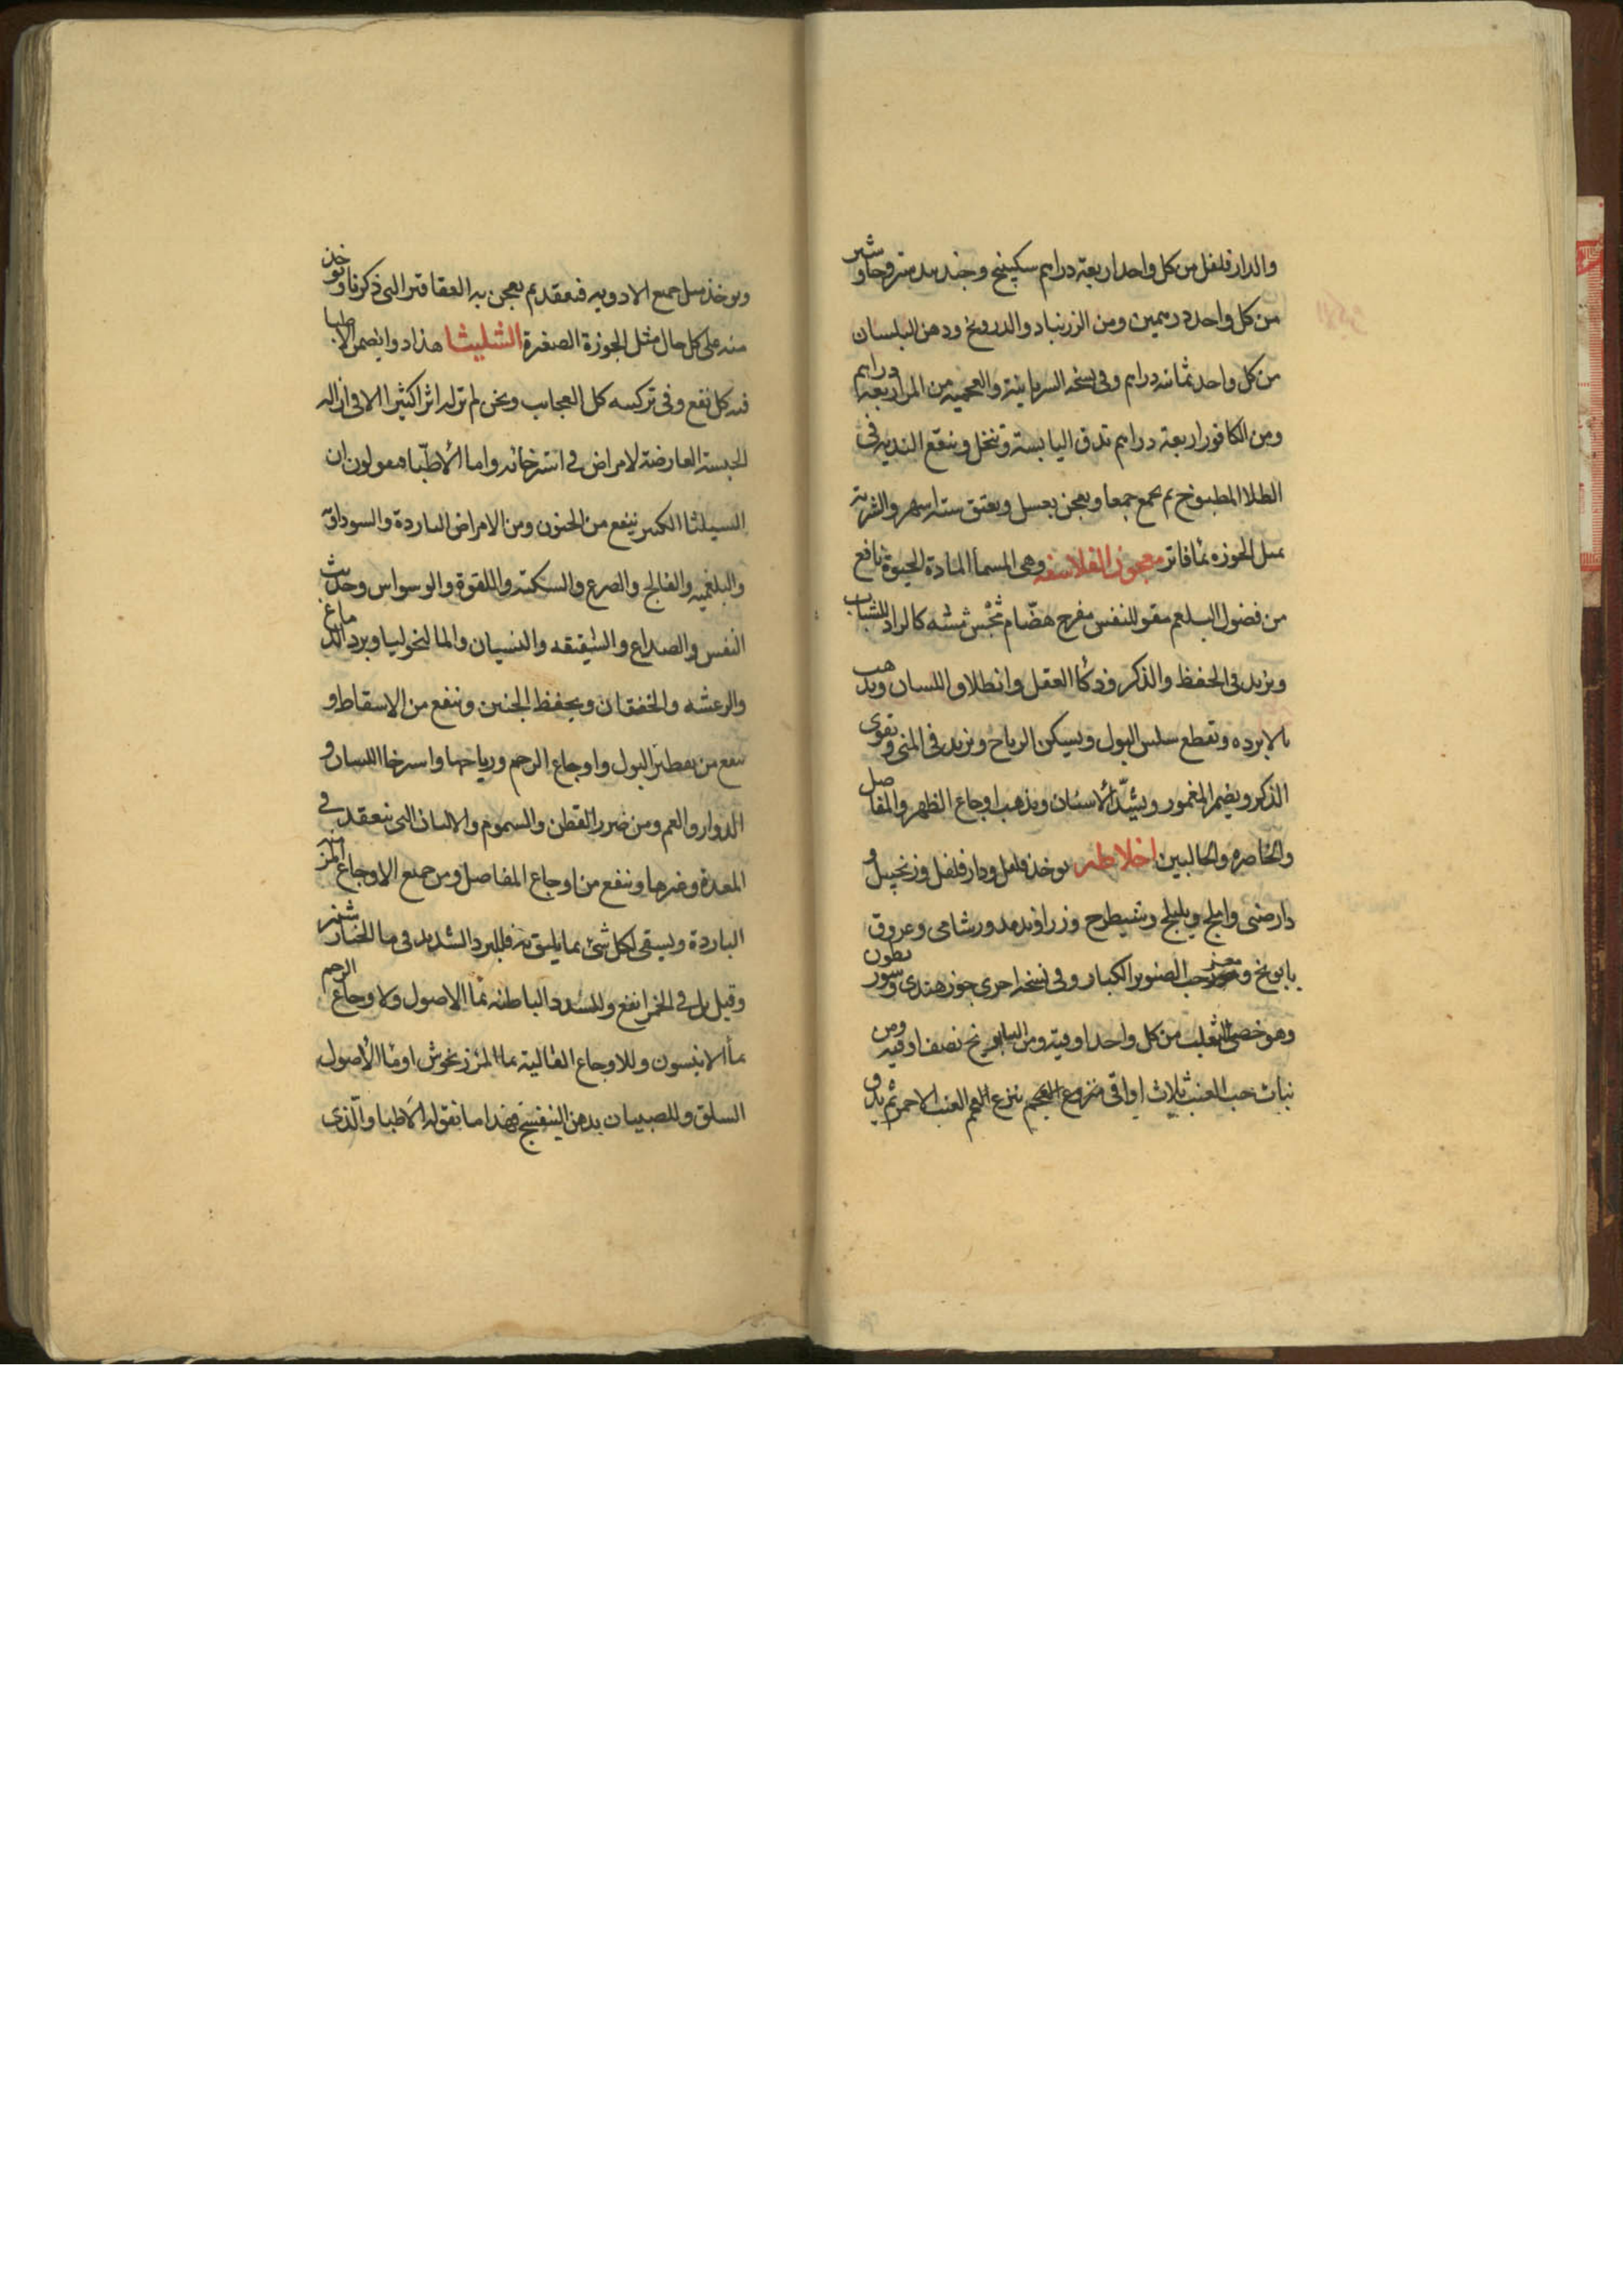 والدار فلفل من كل واحد اربعة دراهم سكبينج وجندبيدستر وجاوشير
من كل واحد درهمين ومن الزرنباد والدرونج ودهن البلسان
من كل واحد ثمانيه دراهم وفي نسخه السريانية والعجميه من المر اربعه دراهم
ومن الكافور اربعة دراهم تدق اليابسة وتنخل وينقع النديه في
الطلا المطبوخ ثم يجمع جمعا ويعجن بعسل ويعتق سته اشهر والشربة
مثل الجوزه بما فاتر معجون الفلاسفه وهي المسما المادة الحيوة نافع
من فضول البلغم مقو للنفس مفرح هضّام كالراد للشباب
ويزيد في الحفظ والذكر وذكأ العقل وانطلاق اللسان ويذهب
بالابرده وتقطع سلس البول ويسكن الرياح ويزيد في المني وتقوى
الذكر ويضم المغمور ويشدّ الأسنان ويذهب اوجاع الظهر والمفاصل
والخاصره والحالبين اخلاطه يوخذ فلفل ودار فلفل وزنجبيل و
دارصيني واملج وبليلج وشيطرج وزراوند مدور شامي وعروق
بابونج وحب الصنوبر الكبار وفي نسخه اخرى جوز هندي
وهو خصى الثعلب من كل واحد اوقية ومن البابونج نصف اوقيه ومن
نبات حب العنب ثلاث اواقي منزوع العجم ينزع العجم العنب الاحمر ثم يدق
ويوخذ عسل جميع الادويه فيعقد ثم يعجن به العقاقير التي ذكرنا ويوخذ
منه على كل حال مثل الجوزة الصغيرة الشليثا هذا دوا يضمن الاطبا
فيه كل نفع وفي تركيبه كل العجايب ونحن لم نر له اثرا كثيرا الا في ازاله
الحبسة العارضة لامراض في استرخائه واما الأطبّا فيقولون ان
السيلثا الكبير ينفع من الجنون ومن الامراض الباردة والسوداوية
والبلغميه والفالج والصرع والسكتة واللقوة والوسواس وحديث
النفس والصداع والشقيقه والنسيان والمالنخوليا وبرد الدماغ
والرعشه والخفقان ويحفظ الجنين وينفع من الاسقاط و
ينفع من تقطير البول واوجاع الرحم ورياحها واسترخا اللسان و
الدوار والغم ومن ضرر القطن والسموم والالبان التي تنعقد في
المعدة وغيرها وينفع من اوجاع المفاصل ومن جميع الاوجاع المزمنه
الباردة ويسقى لكل شئ بما يليق به فللبرد الشديد في ما الخيار شنبر
وقيل بل في الخمر انفع وللسدد الباطنه بما الاصول ولاوجاع الرحم
بمأ الانيسون وللاوجاع الفالية بما المرزنجوش او بما الأصول
السلق وللصبيان بدهن البنفسج فهذا ما تقوله الاطبا والّذى